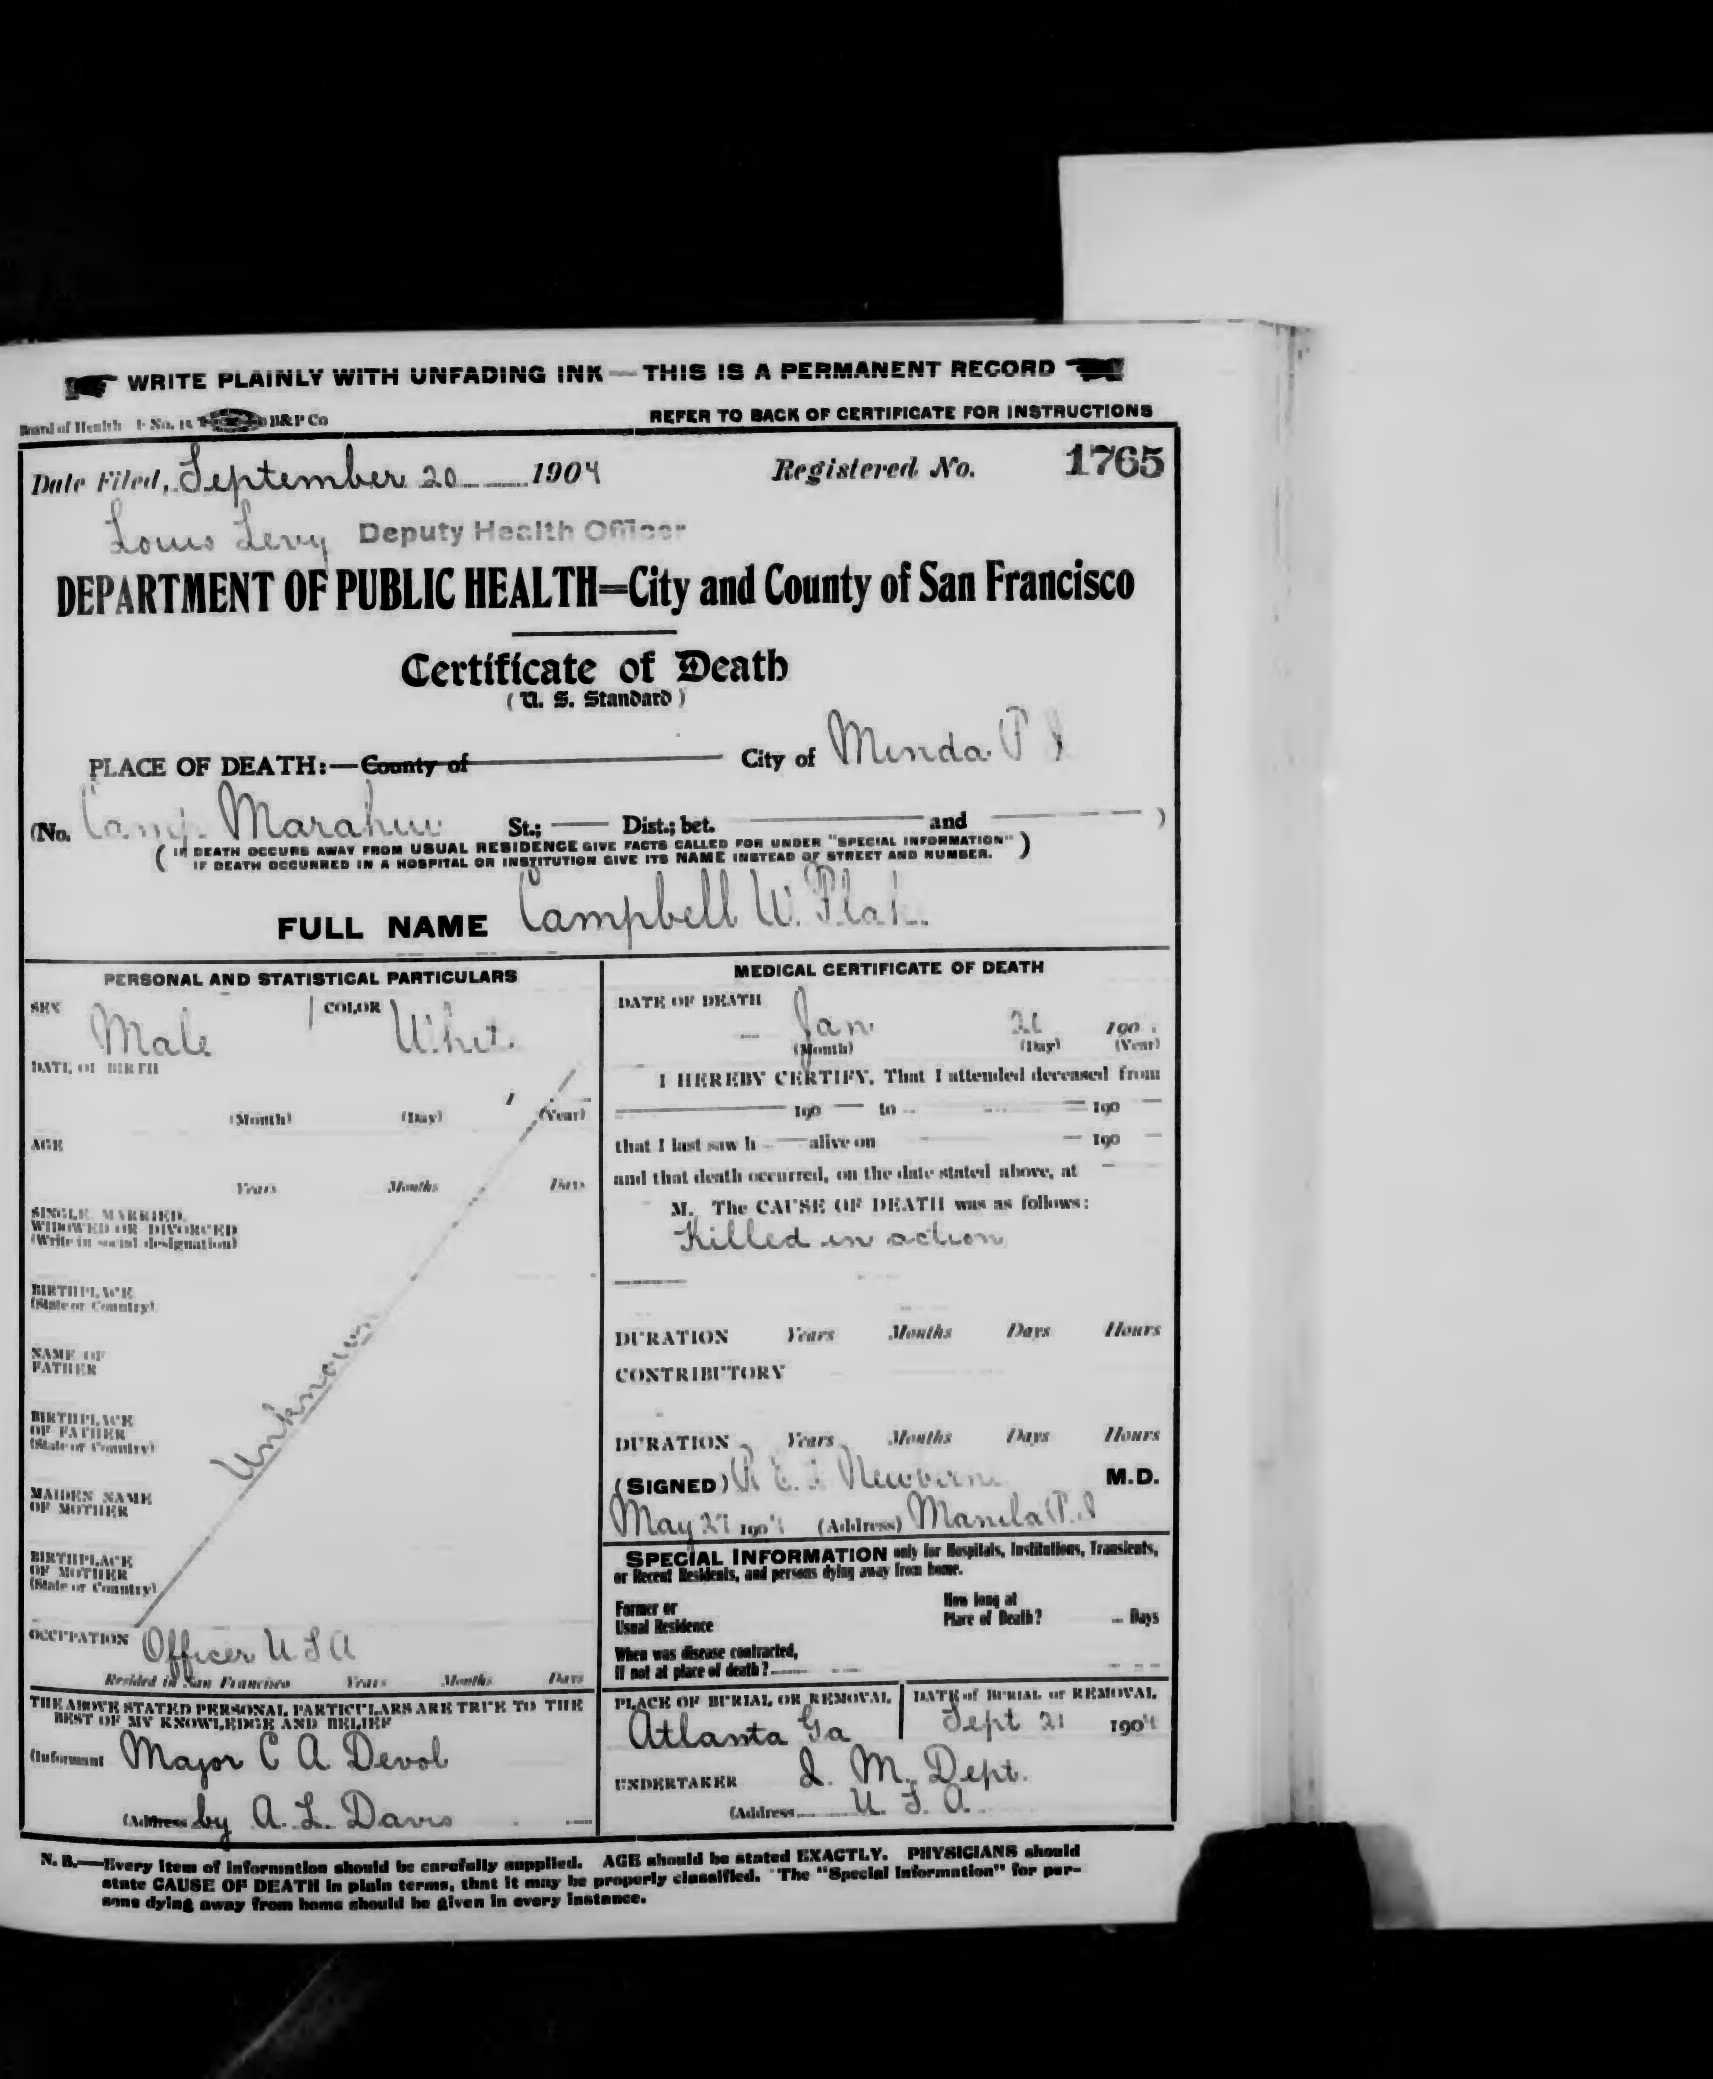 WRITE PLAINLY WITH UNFADING INK — THIS IS A PERMANENT RECORD
Board of Health F No. 15 H&P Co
REFER TO BACK OF CERTIFICATE FOR INSTRUCTIONS
Date Filed, September 20 1904 Registered No. 1765
Louis Levy Deputy Health Officer
DEPARTMENT OF PUBLIC HEALTH=City and County of San Francisco
Certificate of Death
(U. S. Standard)
PLACE OF DEATH:—County of City of P I
(No. Camp St.; Dist.; bet. and )
(IF DEATH OCCURS AWAY FROM USUAL RESIDENCE GIVE FACTS CALLED FOR UNDER "SPECIAL INFORMATION"
IF DEATH OCCURRED IN A HOSPITAL OR INSTITUTION GIVE ITS NAME INSTEAD OF STREET AND NUMBER.)
FULL NAME Campbell W.
PERSONAL AND STATISTICAL PARTICULARS
SEX Male COLOR White
DATE OF BIRTH
(Month) (Day) (Year)
AGE
Years Months Days
SINGLE, MARRIED,
WIDOWED OR DIVORCED
(Write in social designation)
BIRTHPLACE
(State or Country)
NAME OF
FATHER
Unknown
BIRTHPLACE
OF FATHER
(State or Country)
MAIDEN NAME
OF MOTHER
BIRTHPLACE
OF MOTHER
(State or Country)
OCCUPATION Officer U S A
Resided in San Francisco Years Months Days
THE ABOVE STATED PERSONAL PARTICULARS ARE TRUE TO THE
BEST OF MY KNOWLEDGE AND BELIEF
(Informant Major C A Devol
(Address by A. L. Davis
MEDICAL CERTIFICATE OF DEATH
DATE OF DEATH
Jan 190
(Month) (Day) (Year)
I HEREBY CERTIFY, That I attended deceased from
190 to 190
that I last saw h alive on 190
and that death occurred, on the date stated above, at
M. The CAUSE OF DEATH was as follows:
Killed in action
DURATION Years Months Days Hours
CONTRIBUTORY
DURATION Years Months Days Hours
(SIGNED) M.D.
May 27 1904 (Address) Manila P. I
SPECIAL INFORMATION only for Hospitals, Institutions, Transients,
or Recent Residents, and persons dying away from home.
Former or
Usual Residence
How long at
Place of Death? Days
When was disease contracted,
If not at place of death?
PLACE OF BURIAL OR REMOVAL
Atlanta Ga
DATE of BURIAL or REMOVAL
Sept 21 1904
UNDERTAKER Q. M. Dept.
(Address U. S. A.
N. B.—Every item of information should be carefully supplied. AGE should be stated EXACTLY. PHYSICIANS should
state CAUSE OF DEATH in plain terms, that it may be properly classified. The "Special Information" for per-
sons dying away from home should be given in every instance.